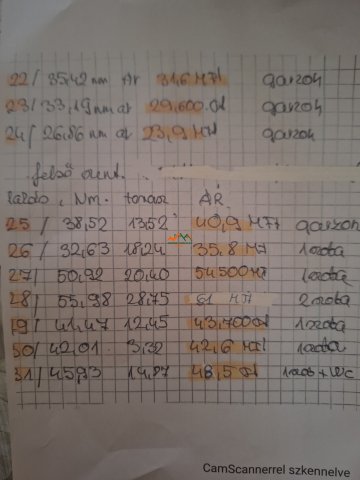 22/ 35,42 nm Ár 31,6 MFt garzon
23/ 33,19 nm ár 29,600.
24/ 26,86 nm ár 23,9 garzon
felső szint.
Nm. terasz ÁR.
25/ 38,52 13,52 40,9 MFt garzon
26/ 32,63 18,24 35,8 1 szoba
27/ 50,92 20,40 54500
28/ 55,98 28,75 61 MFt 2 szoba
29/ 41,47 12,45 43,700 1 szoba
30/ 42,01 3,32 42,6 MFt 1 szoba
31/ 45,93 14,87 48,5 1 szob + WC
CamScannerrel szkennelve